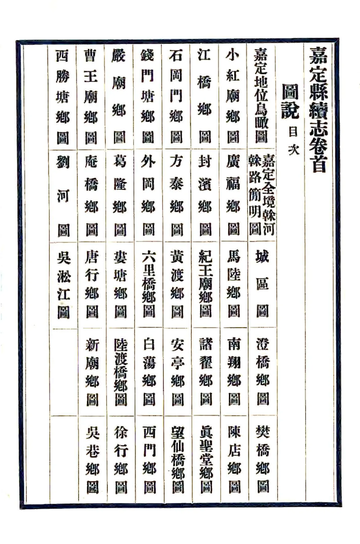 嘉定縣續志卷首
圖說 目次
嘉定地位鳥瞰圖 嘉定全境榦河榦路簡明圖 城區圖 澄橋鄉圖 樊橋鄉圖
小紅廟鄉圖 廣福鄉圖 馬陸鄉圖 南翔鄉圖 陳店鄉圖
江橋鄉圖 封濱鄉圖 紀王廟鄉圖 諸翟鄉圖 眞聖堂鄉圖
石岡門鄉圖 方泰鄉圖 黃渡鄉圖 安亭鄉圖 望仙橋鄉圖
錢門塘鄉圖 外岡鄉圖 六里橋鄉圖 白蕩鄉圖 西門鄉圖
嚴廟鄉圖 葛隆鄉圖 婁塘鄉圖 陸渡橋鄉圖 徐行鄉圖
曹王廟鄉圖 庵橋鄉圖 唐行鄉圖 新廟鄉圖 吳巷鄉圖
西勝塘鄉圖 劉河圖 吳淞江圖